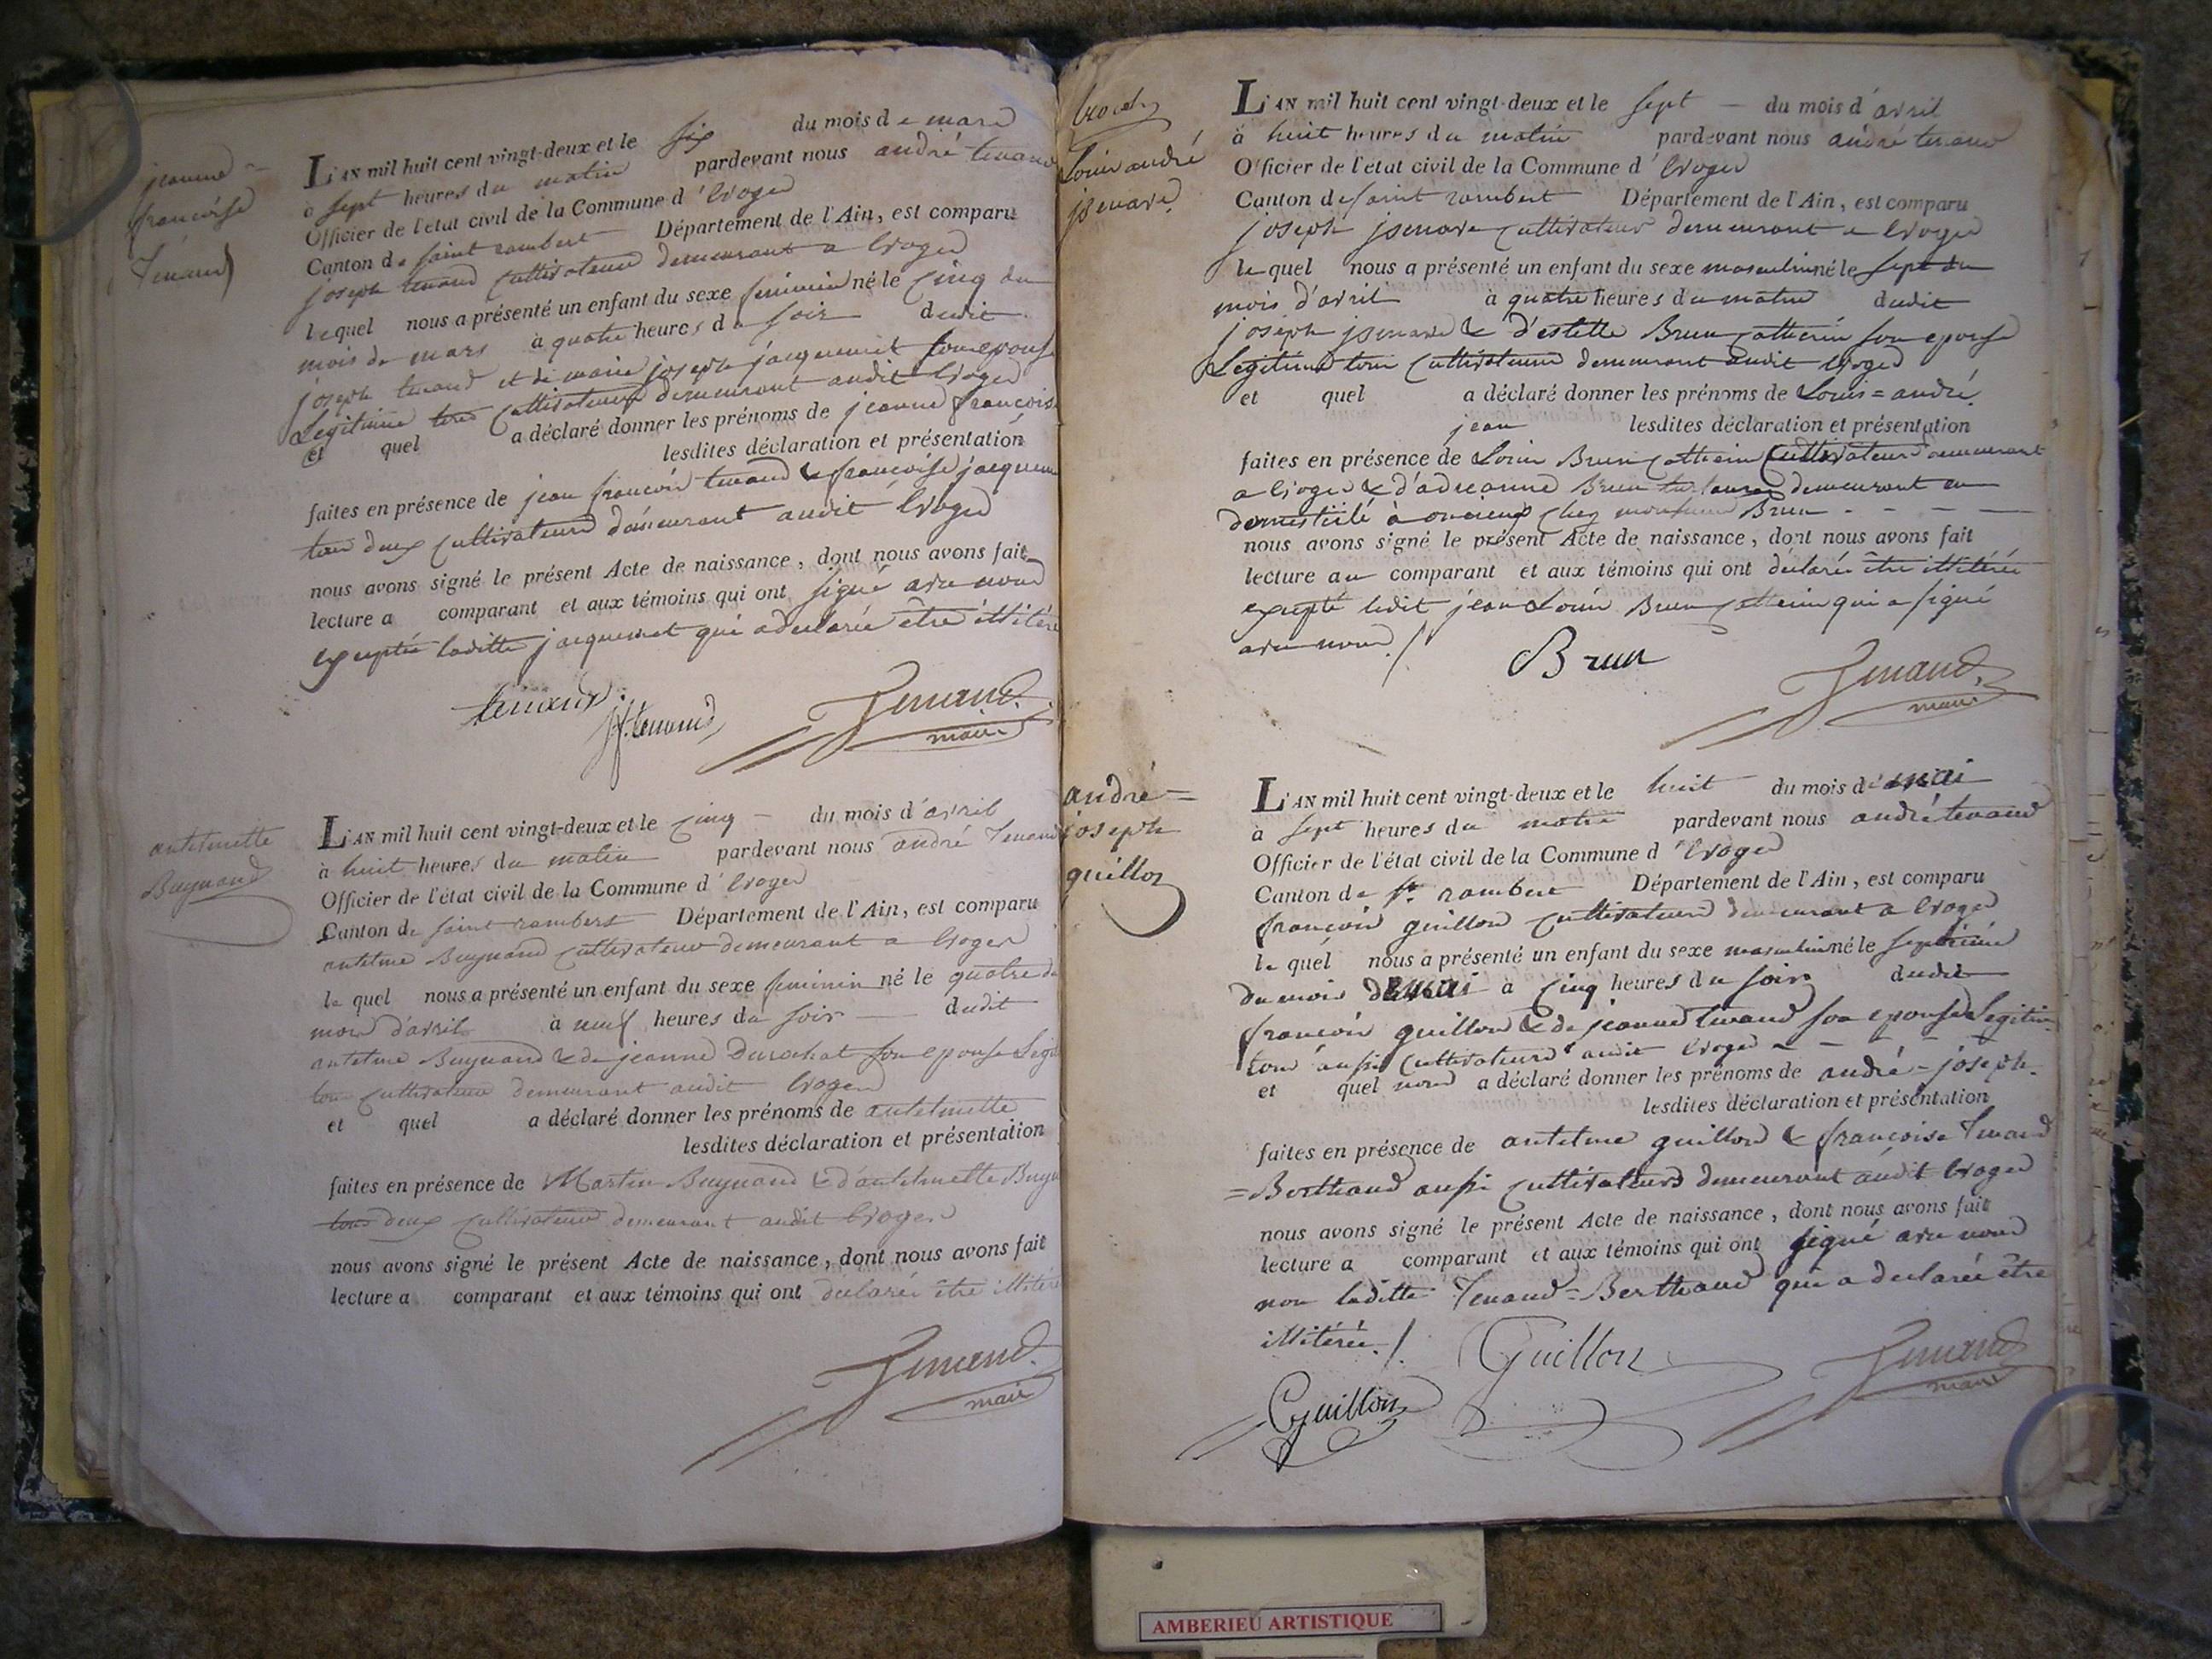 jeanne =
françoise
Tenand
L'AN mil huit cent vingt-deux et le six du mois de mars
à sept heures du matin pardevant nous andré tenand
Officier de l'état civil de la Commune d' Evoges
Canton de saint rambert Département de l'Ain, est comparu
joseph tenand cultivateur demeurant a Evoges
lequel nous a présenté un enfant du sexe feminin né le cinq du
mois de mars à quatre heures du soir dudit
joseph tenand et de marie joseph jacquemet son epouse
Legitime tous cultivateurs demeurant audit Evoges
et quel a déclaré donner les prénoms de jeanne françoise
lesdites déclaration et présentation
faites en présence de jean françois tenand & françoise jacquemet
tous deux cultivateurs demeurant audit Evoges
nous avons signé le présent Acte de naissance, dont nous avons fait
lecture a comparant et aux témoins qui ont signé avec nous
exceptée laditte jacquemet qui a declarée être illitérée
tenand
jf. tenand
Tenand
maire
antelmette
Buynand
L'AN mil huit cent vingt-deux et le cinq du mois d'avril
à huit heures du matin pardevant nous andré Tenand
Officier de l'état civil de la Commune d' Evoges
Canton de saint rambert Département de l'Ain, est comparu
antelme Buynand cultivateur demeurant a Evoges
le quel nous a présenté un enfant du sexe feminin né le quatre du
mois d'avril à neuf heures du soir dudit
antelme Buynand & de jeanne Durochat son epouse Legit
tous cultivateurs demeurant audit Evoges
et quel a déclaré donner les prénoms de antelmette
lesdites déclaration et présentation
faites en présence de Martin Buynand & d'antelmette Buyn
tous deux cultivateurs demeurant audit Evoges
nous avons signé le présent Acte de naissance, dont nous avons fait
lecture a comparant et aux témoins qui ont declaré être illitéré
Tenand
maire
Louis andré
jsenave
L'AN mil huit cent vingt-deux et le sept du mois d'avril
à huit heures du matin pardevant nous andré tenand
Officier de l'état civil de la Commune d' Evoges
Canton de saint rambert Département de l'Ain, est comparu
joseph jsenave cultivateur demeurant a Evoges
le quel nous a présenté un enfant du sexe masculin né le sept du
mois d'avril à quatre heures du matin dudit
joseph jsenave & d'estelle Brun Catherin son epouse
Legitime tous cultivateurs demeurant audit Evoges
et quel a déclaré donner les prénoms de Louis = andré
jean lesdites déclaration et présentation
faites en présence de Louis Brun Catherin cultivateur demeurant
a Evoges & d'adreanne Brun demeurant en
domesticité à chez monsieur Brun
nous avons signé le présent Acte de naissance, dont nous avons fait
lecture au comparant et aux témoins qui ont déclaré être illitéré
excepté ledit jean Louis Brun Catherin qui a signé
avec nous ./.
Brun
Tenand
maire
andré =
joseph
guillon
L'AN mil huit cent vingt-deux et le huit du mois de mai
à sept heures du matin pardevant nous andré tenand
Officier de l'état civil de la Commune d' Evoges
Canton de St. rambert Département de l'Ain, est comparu
françois guillon cultivateur demeurant a Evoges
le quel nous a présenté un enfant du sexe masculin né le septième
du mois de mai à cinq heures du soir dudit
françois guillon & de jeanne tenand son epouse Legitime
tous aussi cultivateurs audit Evoges
et quel nous a déclaré donner les prénoms de andré = joseph
lesdites déclaration et présentation
faites en présence de antelme guillon & françoise Tenand
= Berthaud aussi cultivateurs demeurant audit Evoges
nous avons signé le présent Acte de naissance, dont nous avons fait
lecture a comparant et aux témoins qui ont signé avec nous
non laditte Tenand = Berthaud qui a declarée être
illitérée ./.
Guillon
Guillon
Tenand
maire
AMBERIEU ARTISTIQUE